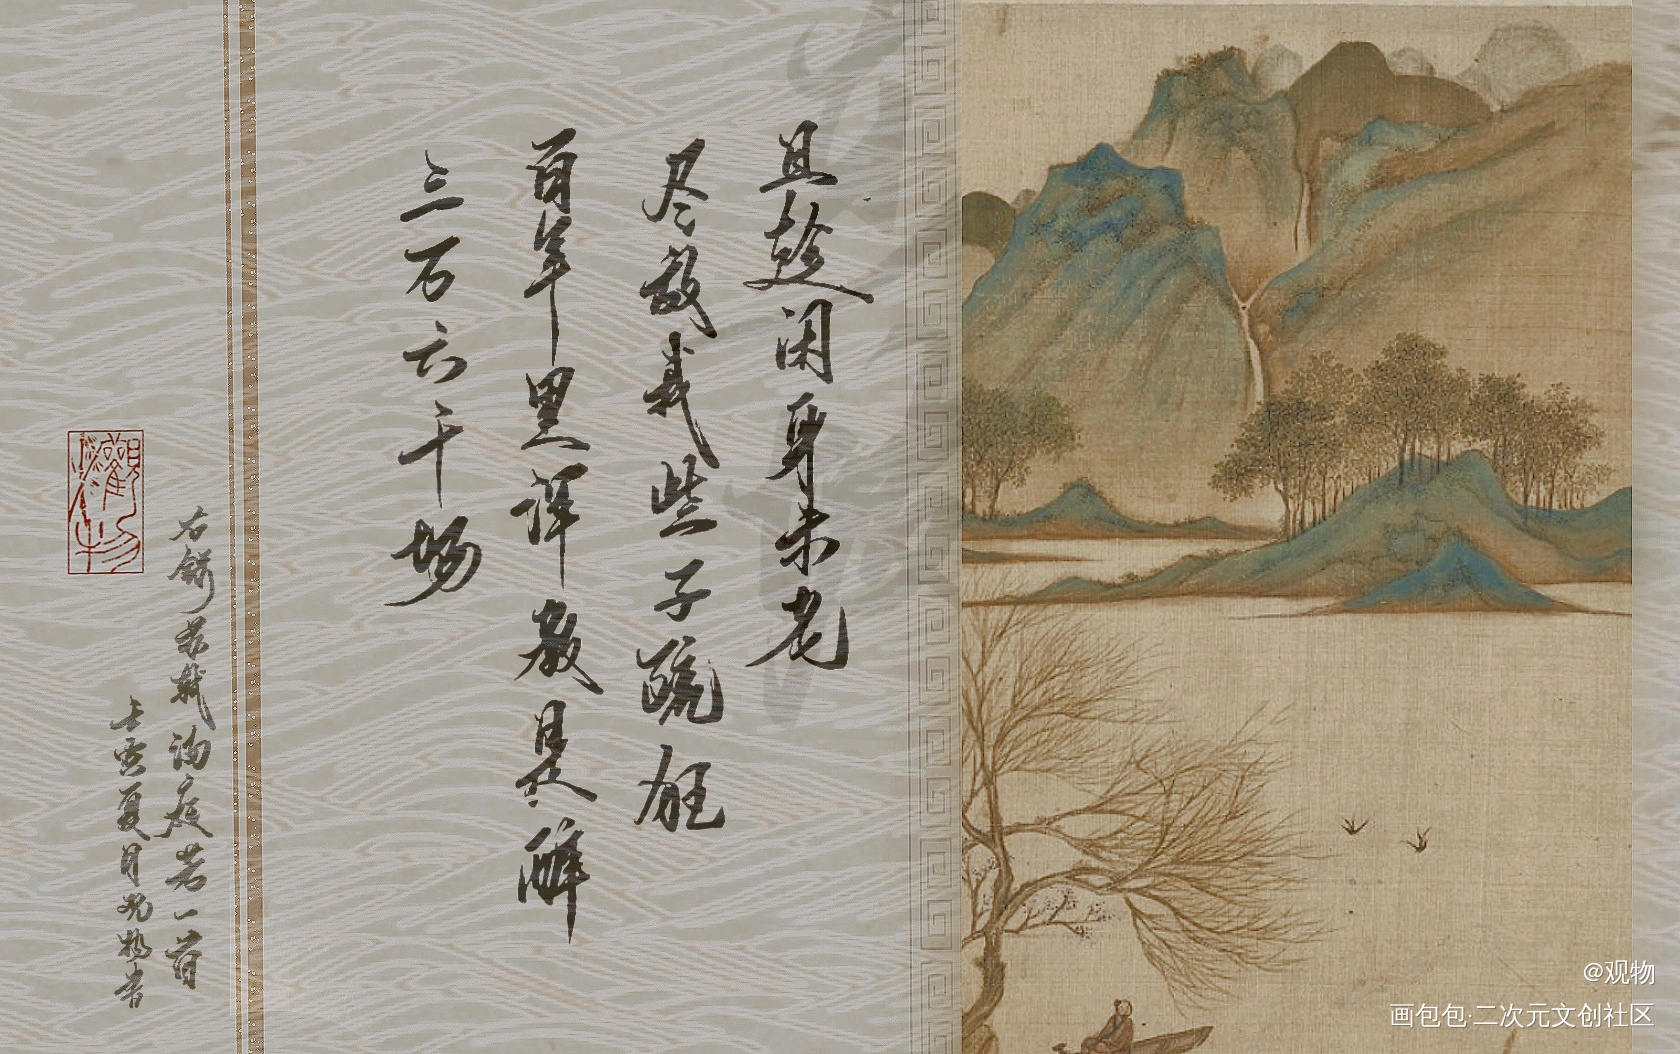 且趁闲身未老
尽放我些子疏狂
百年里浑教是醉
三万六千场
苏轼满庭芳一首
壬寅夏月观物书
觀物
@观物
画包包·二次元文创社区